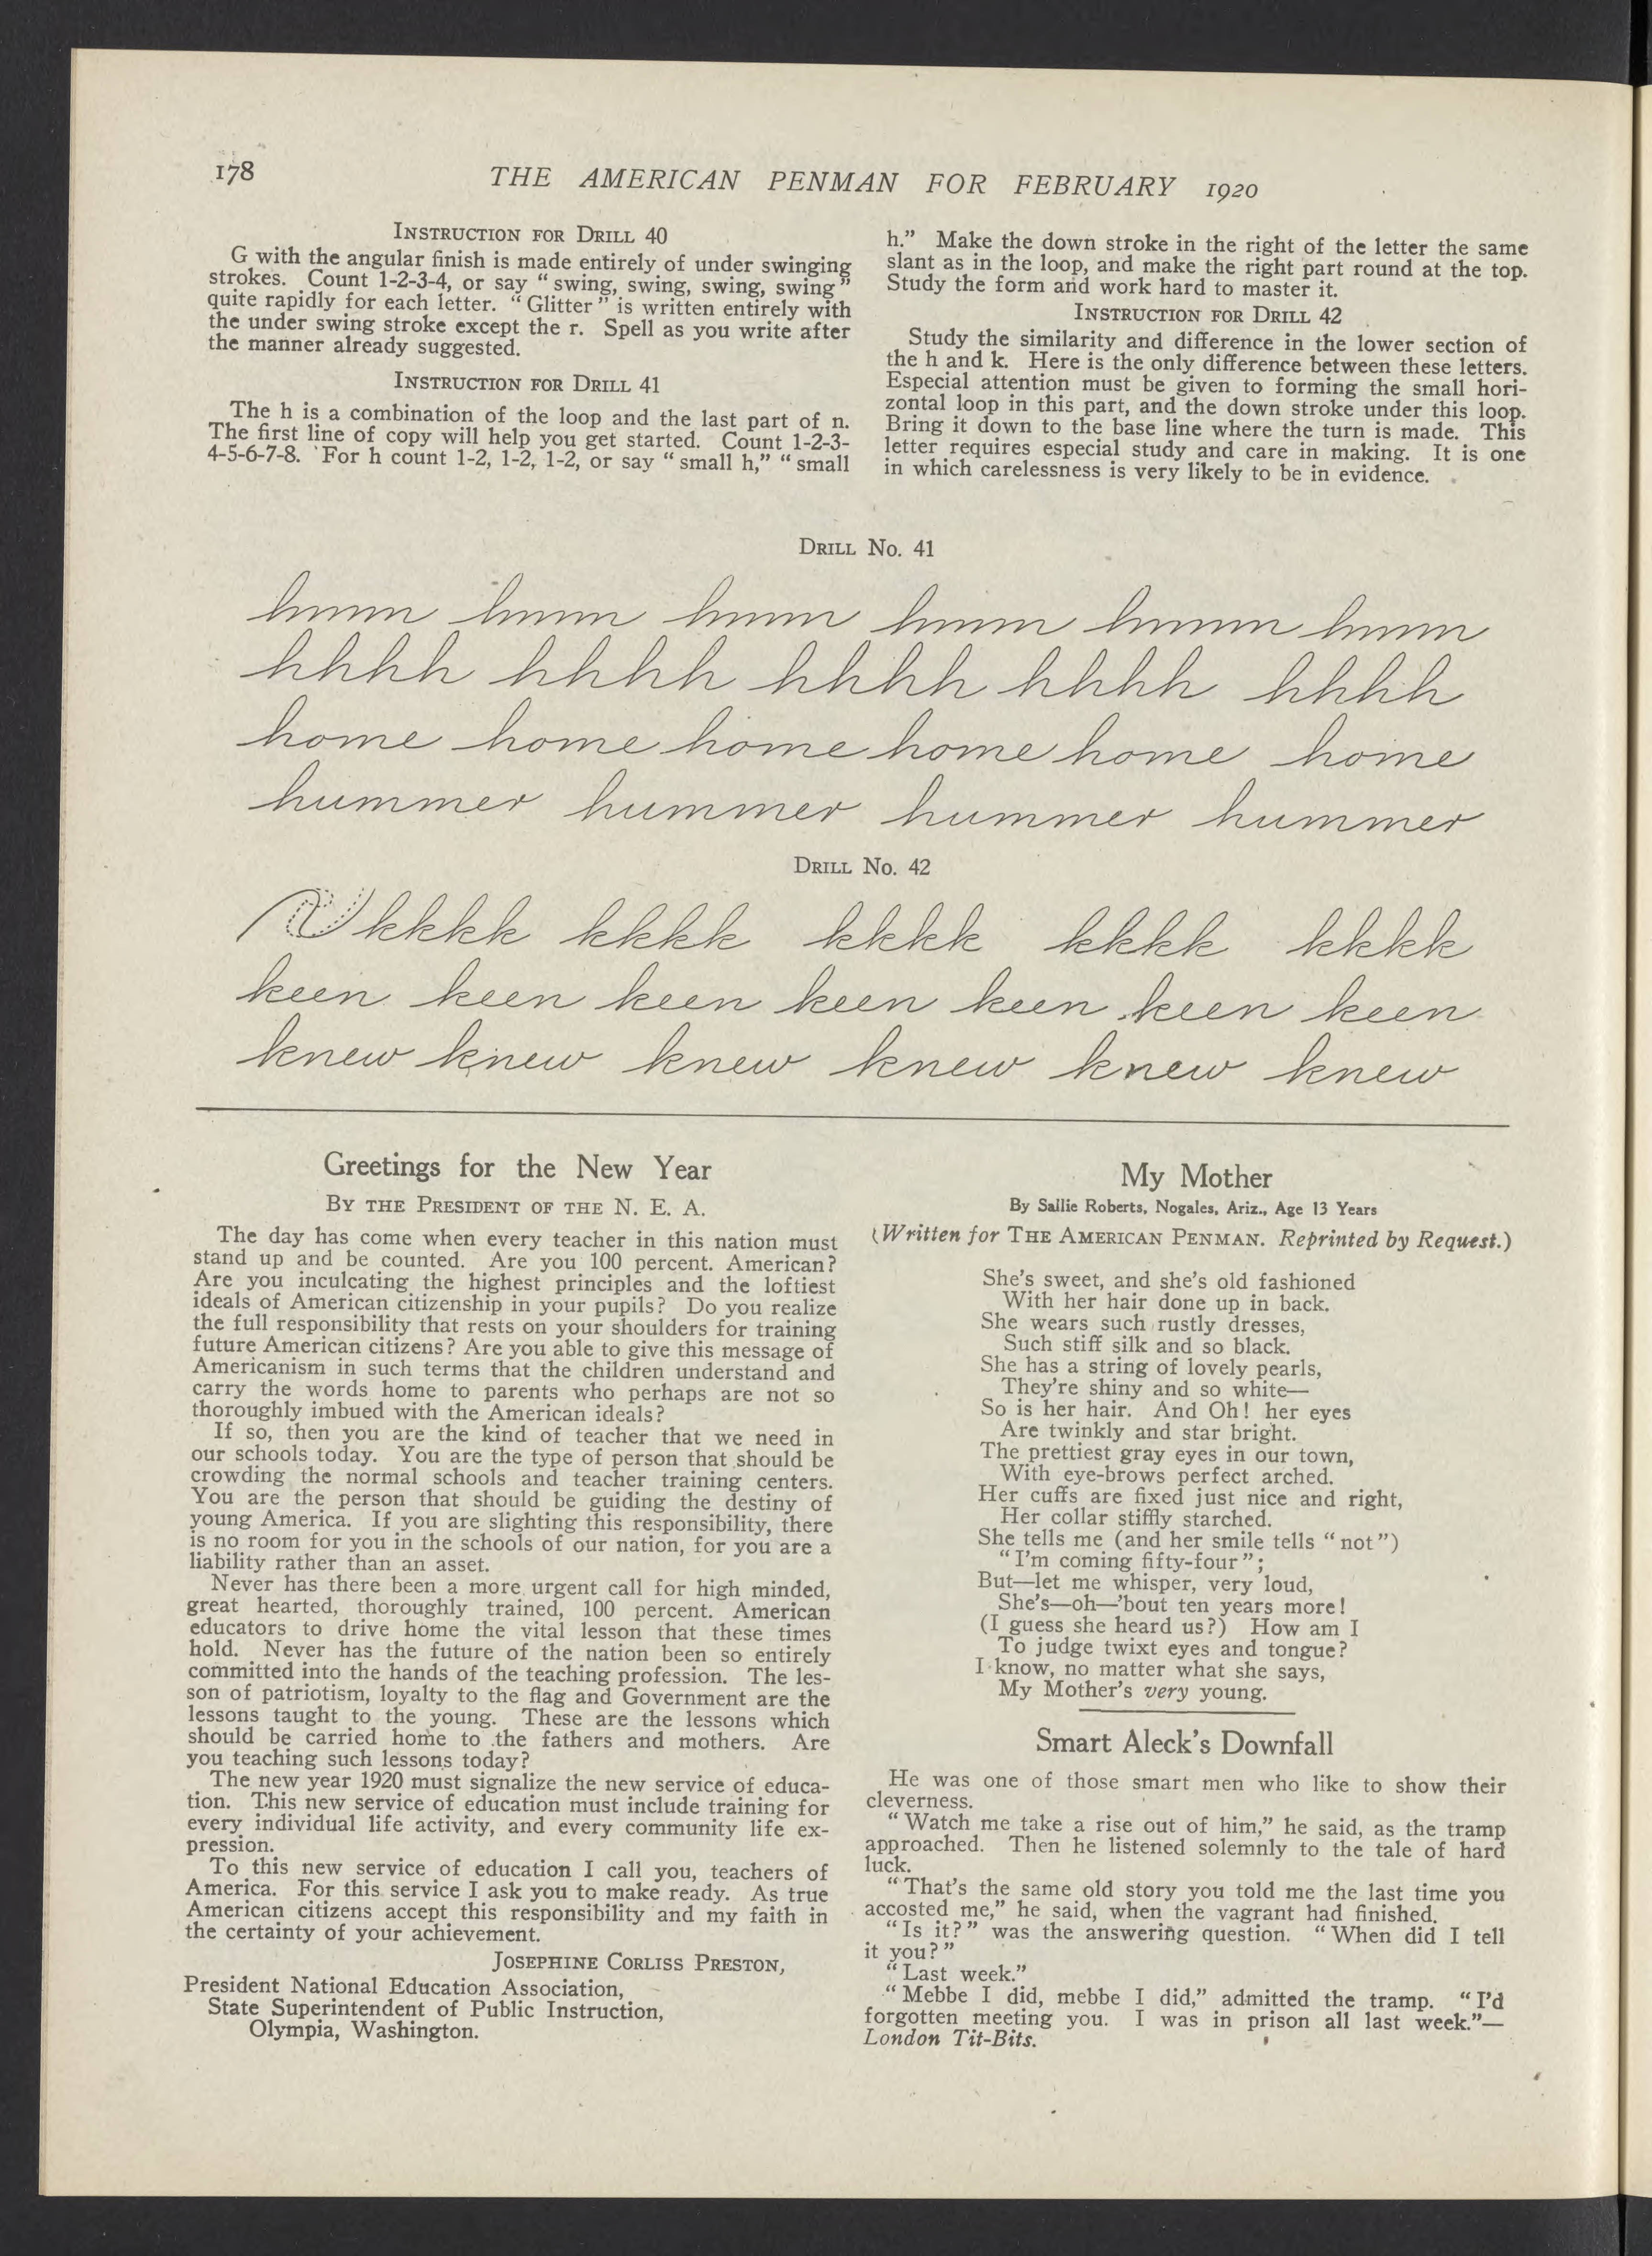 178
THE AMERICAN PENMAN FOR FEBRUARY 1920
INSTRUCTION FOR DRILL 40
G with the angular finish is made entirely of under swinging
strokes. Count 1-2-3-4, or say "swing, swing, swing, swing"
quite rapidly for each letter. "Glitter" is written entirely with
the under swing stroke except the r. Spell as you write after
the manner already suggested.
INSTRUCTION FOR DRILL 41
The h is a combination of the loop and the last part of n.
The first line of copy will help you get started. Count 1-2-3-
4-5-6-7-8. For h count 1-2, 1-2, 1-2, or say "small h," "small
h." Make the down stroke in the right of the letter the same
slant as in the loop, and make the right part round at the top.
Study the form and work hard to master it.
INSTRUCTION FOR DRILL 42
Study the similarity and difference in the lower section of
the h and k. Here is the only difference between these letters.
Especial attention must be given to forming the small hori-
zontal loop in this part, and the down stroke under this loop.
Bring it down to the base line where the turn is made. This
letter requires especial study and care in making. It is one
in which carelessness is very likely to be in evidence.
DRILL No. 41
hhhh hhhh hhhh hhhh hhhh
home home home home home home
hummer hummer hummer hummer
DRILL No. 42
kkkk kkkk kkkk kkkk kkkk
keen keen keen keen keen keen keen
knew knew knew knew knew knew
Greetings for the New Year
BY THE PRESIDENT OF THE N. E. A.
The day has come when every teacher in this nation must
stand up and be counted. Are you 100 percent. American?
Are you inculcating the highest principles and the loftiest
ideals of American citizenship in your pupils? Do you realize
the full responsibility that rests on your shoulders for training
future American citizens? Are you able to give this message of
Americanism in such terms that the children understand and
carry the words home to parents who perhaps are not so
thoroughly imbued with the American ideals?
If so, then you are the kind of teacher that we need in
our schools today. You are the type of person that should be
crowding the normal schools and teacher training centers.
You are the person that should be guiding the destiny of
young America. If you are slighting this responsibility, there
is no room for you in the schools of our nation, for you are a
liability rather than an asset.
Never has there been a more urgent call for high minded,
great hearted, thoroughly trained, 100 percent. American
educators to drive home the vital lesson that these times
hold. Never has the future of the nation been so entirely
committed into the hands of the teaching profession. The les-
son of patriotism, loyalty to the flag and Government are the
lessons taught to the young. These are the lessons which
should be carried home to the fathers and mothers. Are
you teaching such lessons today?
The new year 1920 must signalize the new service of educa-
tion. This new service of education must include training for
every individual life activity, and every community life ex-
pression.
To this new service of education I call you, teachers of
America. For this service I ask you to make ready. As true
American citizens accept this responsibility and my faith in
the certainty of your achievement.
JOSEPHINE CORLISS PRESTON,
President National Education Association,
State Superintendent of Public Instruction,
Olympia, Washington.
My Mother
By Sallie Roberts, Nogales, Ariz., Age 13 Years
(Written for THE AMERICAN PENMAN. Reprinted by Request.)
She's sweet, and she's old fashioned
With her hair done up in back.
She wears such rustly dresses,
Such stiff silk and so black.
She has a string of lovely pearls,
They're shiny and so white—
So is her hair. And Oh! her eyes
Are twinkly and star bright.
The prettiest gray eyes in our town,
With eye-brows perfect arched.
Her cuffs are fixed just nice and right,
Her collar stiffly starched.
She tells me (and her smile tells "not")
"I'm coming fifty-four";
But—let me whisper, very loud,
She's—oh—'bout ten years more!
(I guess she heard us?) How am I
To judge twixt eyes and tongue?
I know, no matter what she says,
My Mother's very young.
Smart Aleck's Downfall
He was one of those smart men who like to show their
cleverness.
"Watch me take a rise out of him," he said, as the tramp
approached. Then he listened solemnly to the tale of hard
luck.
"That's the same old story you told me the last time you
accosted me," he said, when the vagrant had finished.
"Is it?" was the answering question. "When did I tell
it you?"
"Last week."
"Mebbe I did, mebbe I did," admitted the tramp. "I'd
forgotten meeting you. I was in prison all last week."—
London Tit-Bits.